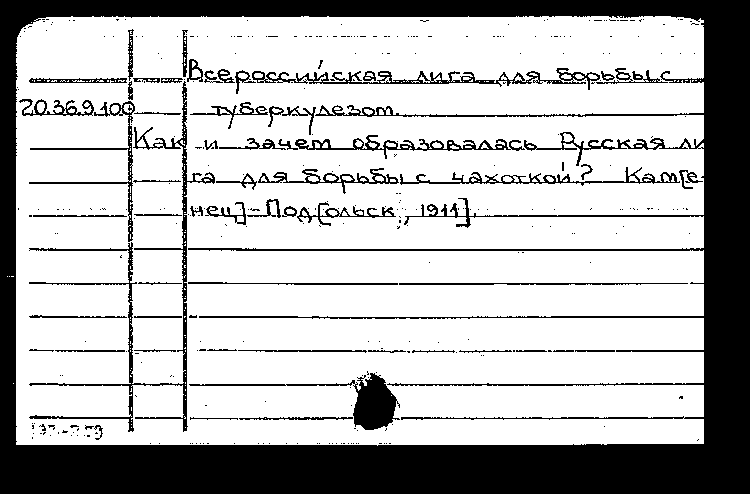 Всероссийская лига для борьбы с
20.36.9.100 туберкулезом.
Как и зачем образовалась Русская ли
га для борьбы с чахоткой? Кам[е-
нец]-Под[ольск, 1911].